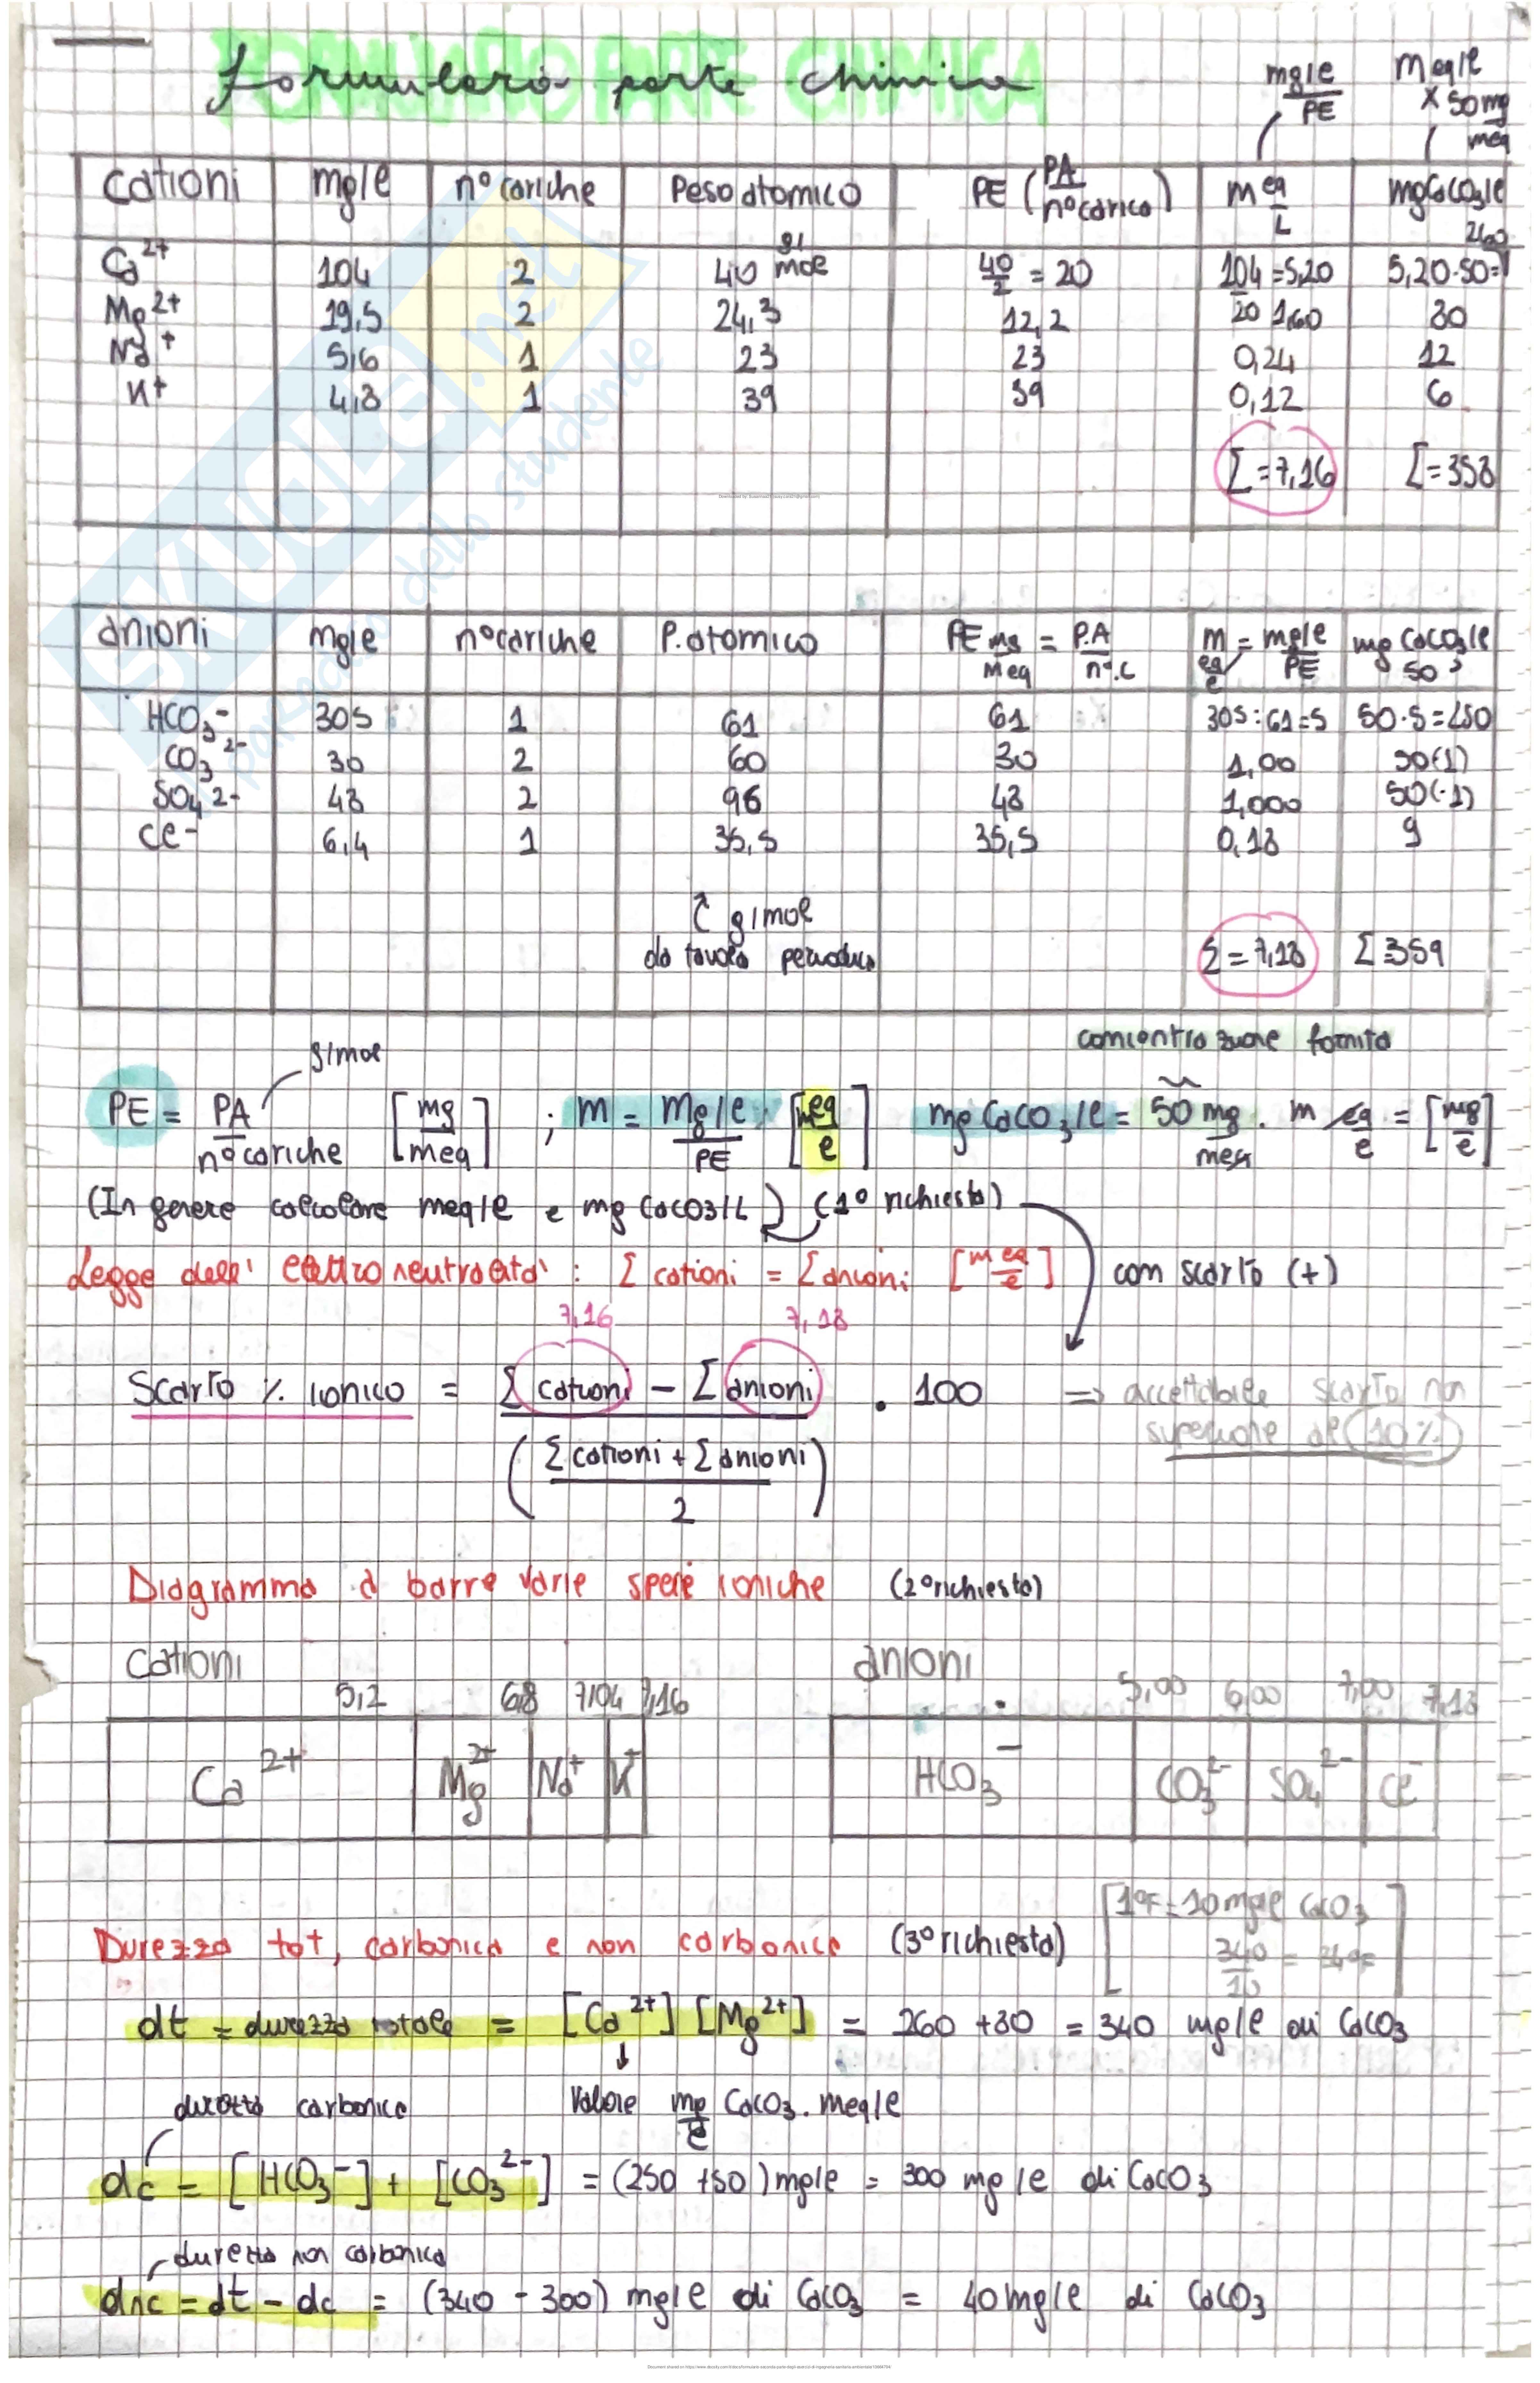 FORMULARIO PARTE CHIMICA
Formulario parte chimica
mg/l / PE
meq/l x 50 mg/meq
cationi | mg/l | n° cariche | Peso atomico | PE (PA / n° carica) | meq/L | mgCaCO3/l
Ca2+ | 104 | 2 | 40 g/mol | 40/2 = 20 | 104/20 = 5,20 | 5,20·50= 260
Mg2+ | 19,5 | 2 | 24,3 | 12,2 | 1,60 | 80
Na+ | 5,6 | 1 | 23 | 23 | 0,24 | 12
K+ | 4,8 | 1 | 39 | 39 | 0,12 | 6
Σ=7,16 | Σ=358
anioni | mg/l | n° cariche | P. atomico | PE mg/meq = P.A/n°.c | m eq/l = mg/l / PE | mg CaCO3/l 50
HCO3- | 305 | 1 | 61 | 61 | 305:61=5 | 50·5=250
CO3 2- | 30 | 2 | 60 | 30 | 1,00 | 50(1)
SO4 2- | 48 | 2 | 96 | 48 | 1,000 | 50(·1)
Cl- | 6,4 | 1 | 35,5 | 35,5 | 0,18 | 9
g/mol
da tavola periodica
Σ=7,18 | Σ=359
concentrazione fornita
g/mol
PE = PA / n° cariche [mg/meq] ; m = mg/l / PE [meq/l] mg CaCO3/l = 50 mg/meq · m eq/l = [mg/l]
(In genere calcolare meq/l e mg CaCO3/L) (1° richiesta)
Legge dell' elettroneutralità : Σ cationi = Σ anioni [m eq/l] con scarto (+)
7,16 7,18
Scarto % ionico = Σ cationi − Σ anioni / (Σ cationi + Σ anioni / 2) · 100 ⇒ accettabile scarto non
superiore al 10%
Diagramma a barre varie specie ioniche (2° richiesta)
cationi anioni
5,2 6,8 7,04 7,16 5,00 6,00 7,00 7,18
Ca2+ Mg2+ Na+ K+ HCO3− CO3 2- SO4 2- Cl-
[1°F = 10 mg/l CaCO3
340/10 = 34°F]
Durezza tot, carbonica e non carbonica (3° richiesta)
dt = durezza totale = [Ca2+] [Mg2+] = 260 + 80 = 340 mg/l di CaCO3
Valore mg/l CaCO3 . meq/l
durezza carbonica
dc = [HCO3−] + [CO3 2−] = (250 +50) mg/l = 300 mg/l di CaCO3
durezza non carbonica
dnc = dt − dc = (340 − 300) mg/l di CaCO3 = 40 mg/l di CaCO3
SKUOLA.net
dello studente